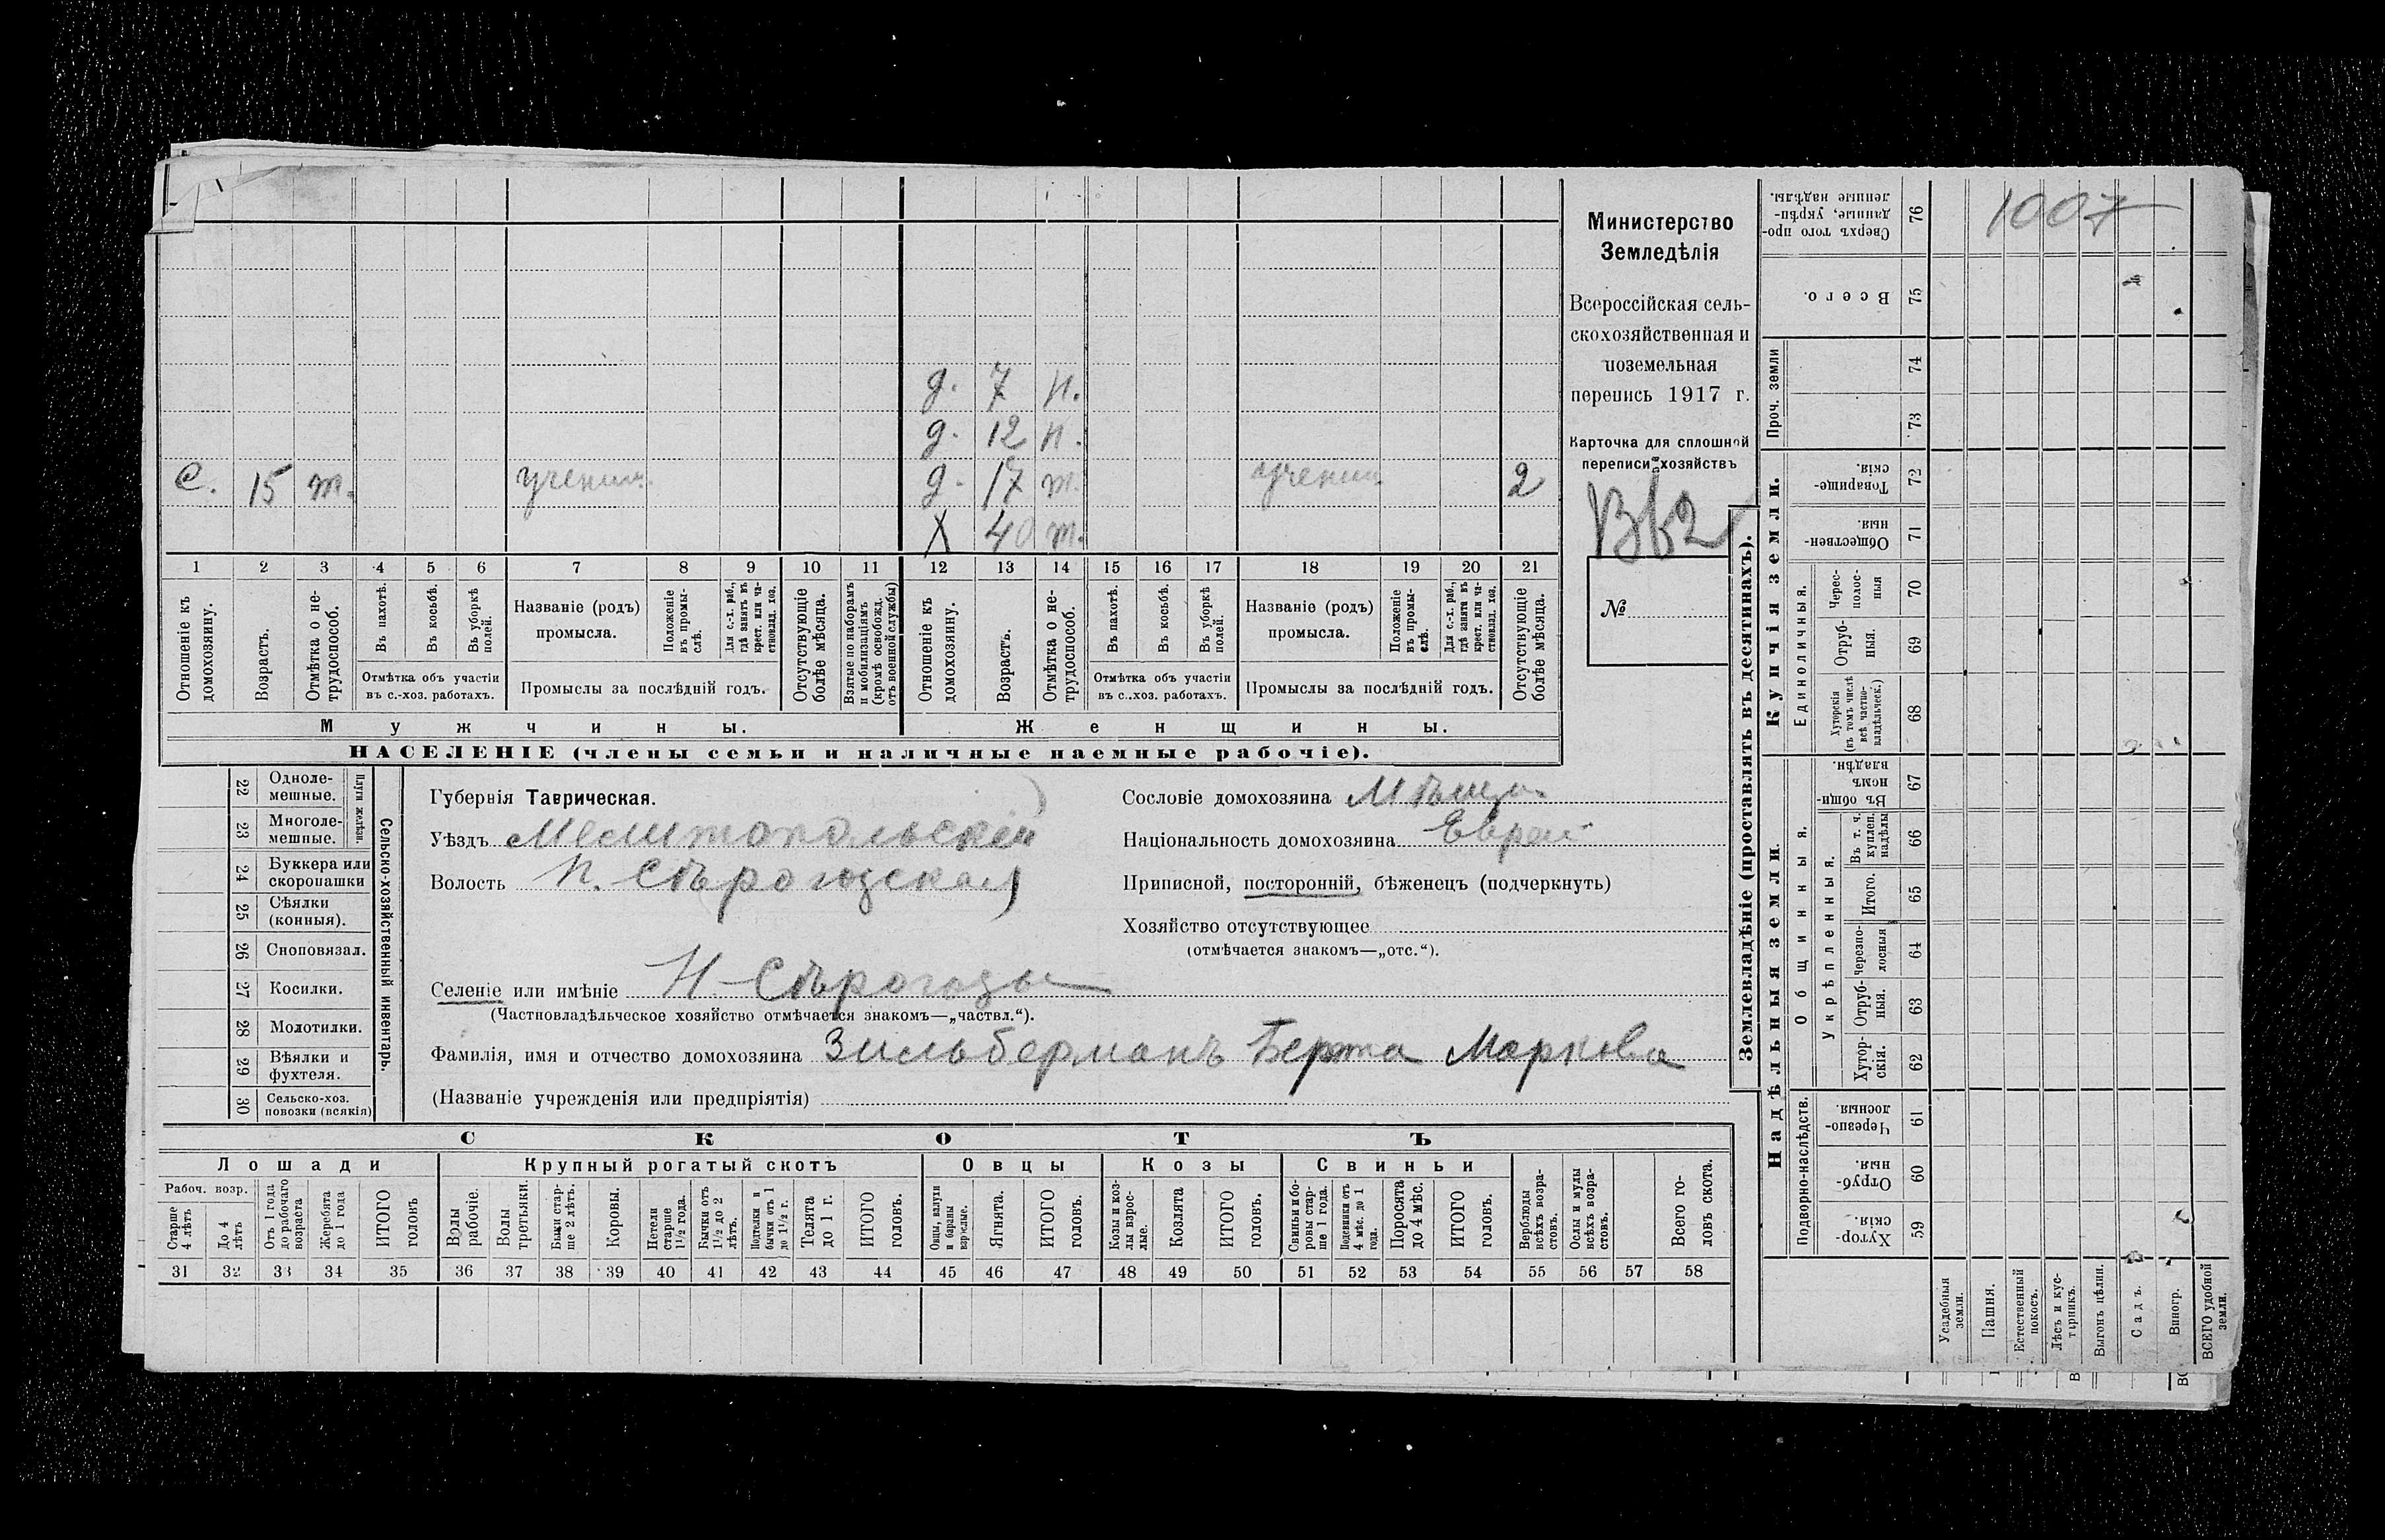 1007
Министерство
Земледѣлія
Всероссійская сель-
скохозяйственная и
поземельная
перепись 1917 г.
Карточка для сплошной
переписи хозяйствъ
№
д. 7 н.
д. 12 н.
с. 15 т. ученик. д. 17 т. учениц. 2
X 40 т.
1 2 3 4 5 6 7 8 9 10 11 12 13 14 15 16 17 18 19 20 21
Отношеніе къ домохозяину.
Возрастъ.
Отмѣтка о не-трудоспособ.
Въ пахотѣ.
Въ косьбѣ.
Въ уборкѣ полей.
Отмѣтка объ участіи
въ с.-хоз. работахъ.
Названіе (родъ)
промысла.
Положеніе въ промы-слѣ.
Для с.-х. раб., гдѣ занятъ въ крест. или ча-стновлад. хоз.
Промыслы за послѣдній годъ.
Отсутствующіе болѣе мѣсяца.
Взятые по наборамъ и мобилизаціямъ (кромѣ освобожд. отъ военной службы)
Отношеніе къ домохозяину.
Возрастъ.
Отмѣтка о не-трудоспособ.
Въ пахотѣ.
Въ косьбѣ.
Въ уборкѣ полей.
Отмѣтка объ участіи
въ с..хоз. работахъ.
Названіе (родъ)
промысла.
Положеніе въ промы-слѣ.
Для с.-х. раб., гдѣ занята въ крест. или ча-стновлад. хоз.
Промыслы за послѣдній годъ.
Отсутствующіе болѣе мѣсяца.
Мужчины. Женщины.
НАСЕЛЕНІЕ (члены семьи и наличные наемные рабочіе).
Сельско-хозяйственный инвентарь.
Плуги желѣзн.
22 Одноле-мешные.
23 Многоле-мешные.
24 Буккера или скоропашки
25 Сѣялки (конныя).
26 Сноповязал.
27 Косилки.
28 Молотилки.
29 Вѣялки и фухтеля.
30 Сельско-хоз. повозки (всякія)
Губернія Таврическая.
Уѣздъ Мелитопольскій
Волость Н. Сѣрогозская
Селеніе или имѣніе Н-Сѣрогозы
(Частновладѣльческое хозяйство отмѣчается знакомъ—„частвл.“).
Фамилія, имя и отчество домохозяина Зильберманъ Берта Маркова
(Названіе учрежденія или предпріятія)
Сословіе домохозяина Мѣщан.
Національность домохозяина Еврей
Приписной, посторонній, бѣженецъ (подчеркнуть)
Хозяйство отсутствующее
(отмѣчается знакомъ—„отс.“).
СКОТЪ
Лошади Крупный рогатый скотъ Овцы Козы Свиньи
Рабоч. возр.
Старше 4 лѣтъ
До 4 лѣтъ
Отъ 1 года до рабочаго возраста
Жеребята до 1 года
ИТОГО головъ
Волы рабочіе.
Волы третьяки.
Быки стар-ше 2 лѣтъ.
Коровы.
Нетели старше 1½ года.
Бычки отъ 1½ до 2 лѣтъ.
Подтелки и бычки отъ 1 до 1½ г.
Телята до 1 г.
ИТОГО головъ.
Овцы, валухи и бараны взрослые.
Ягнята.
ИТОГО головъ.
Козы и коз-лы взрос-лые.
Козлята
ИТОГО головъ.
Свиньи и бо-ровы стар-ше 1 года.
Подсвинки отъ 4 мѣс. до 1 года.
Поросята до 4 мѣс.
ИТОГО головъ.
Верблюды всѣхъ возра-стовъ.
Ослы и мулы всѣхъ возра-стовъ.
Всего го-ловъ скота.
31 32 33 34 35 36 37 38 39 40 41 42 43 44 45 46 47 48 49 50 51 52 53 54 55 56 57 58
Землевладѣніе (проставлять въ десятинахъ).
Надѣльныя земли
Купчія земли.
Проч. земли
Подворно-наслѣдств.
Общинныя.
Укрѣпленныя.
Единоличныя.
Хутор-скія. 59
Отруб-ныя. 60
Черезпо-лосныя. 61
Хутор-скія. 62
Отруб-ныя. 63
Черезпо-лосныя 64
Итого. 65
Въ т. ч. куплен. надѣлы 66
Въ общи-номъ владѣн. 67
Хуторскія (въ томъ числѣ всѣ частно-владѣльческ.) 68
Отруб-ныя. 69
Черес-полос-ныя 70
Обществен-ныя. 71
Товарище-скія. 72
73
74
Всего. 75
Сверхъ того про-данные, укрѣп-ленные надѣлы. 76
Усадебныя земли.
Пашня.
Естественный покосъ.
Лѣсъ и кус-тарникъ.
Выгонъ цѣлин.
Садъ.
Виногр.
ВСЕГО удобной земли.